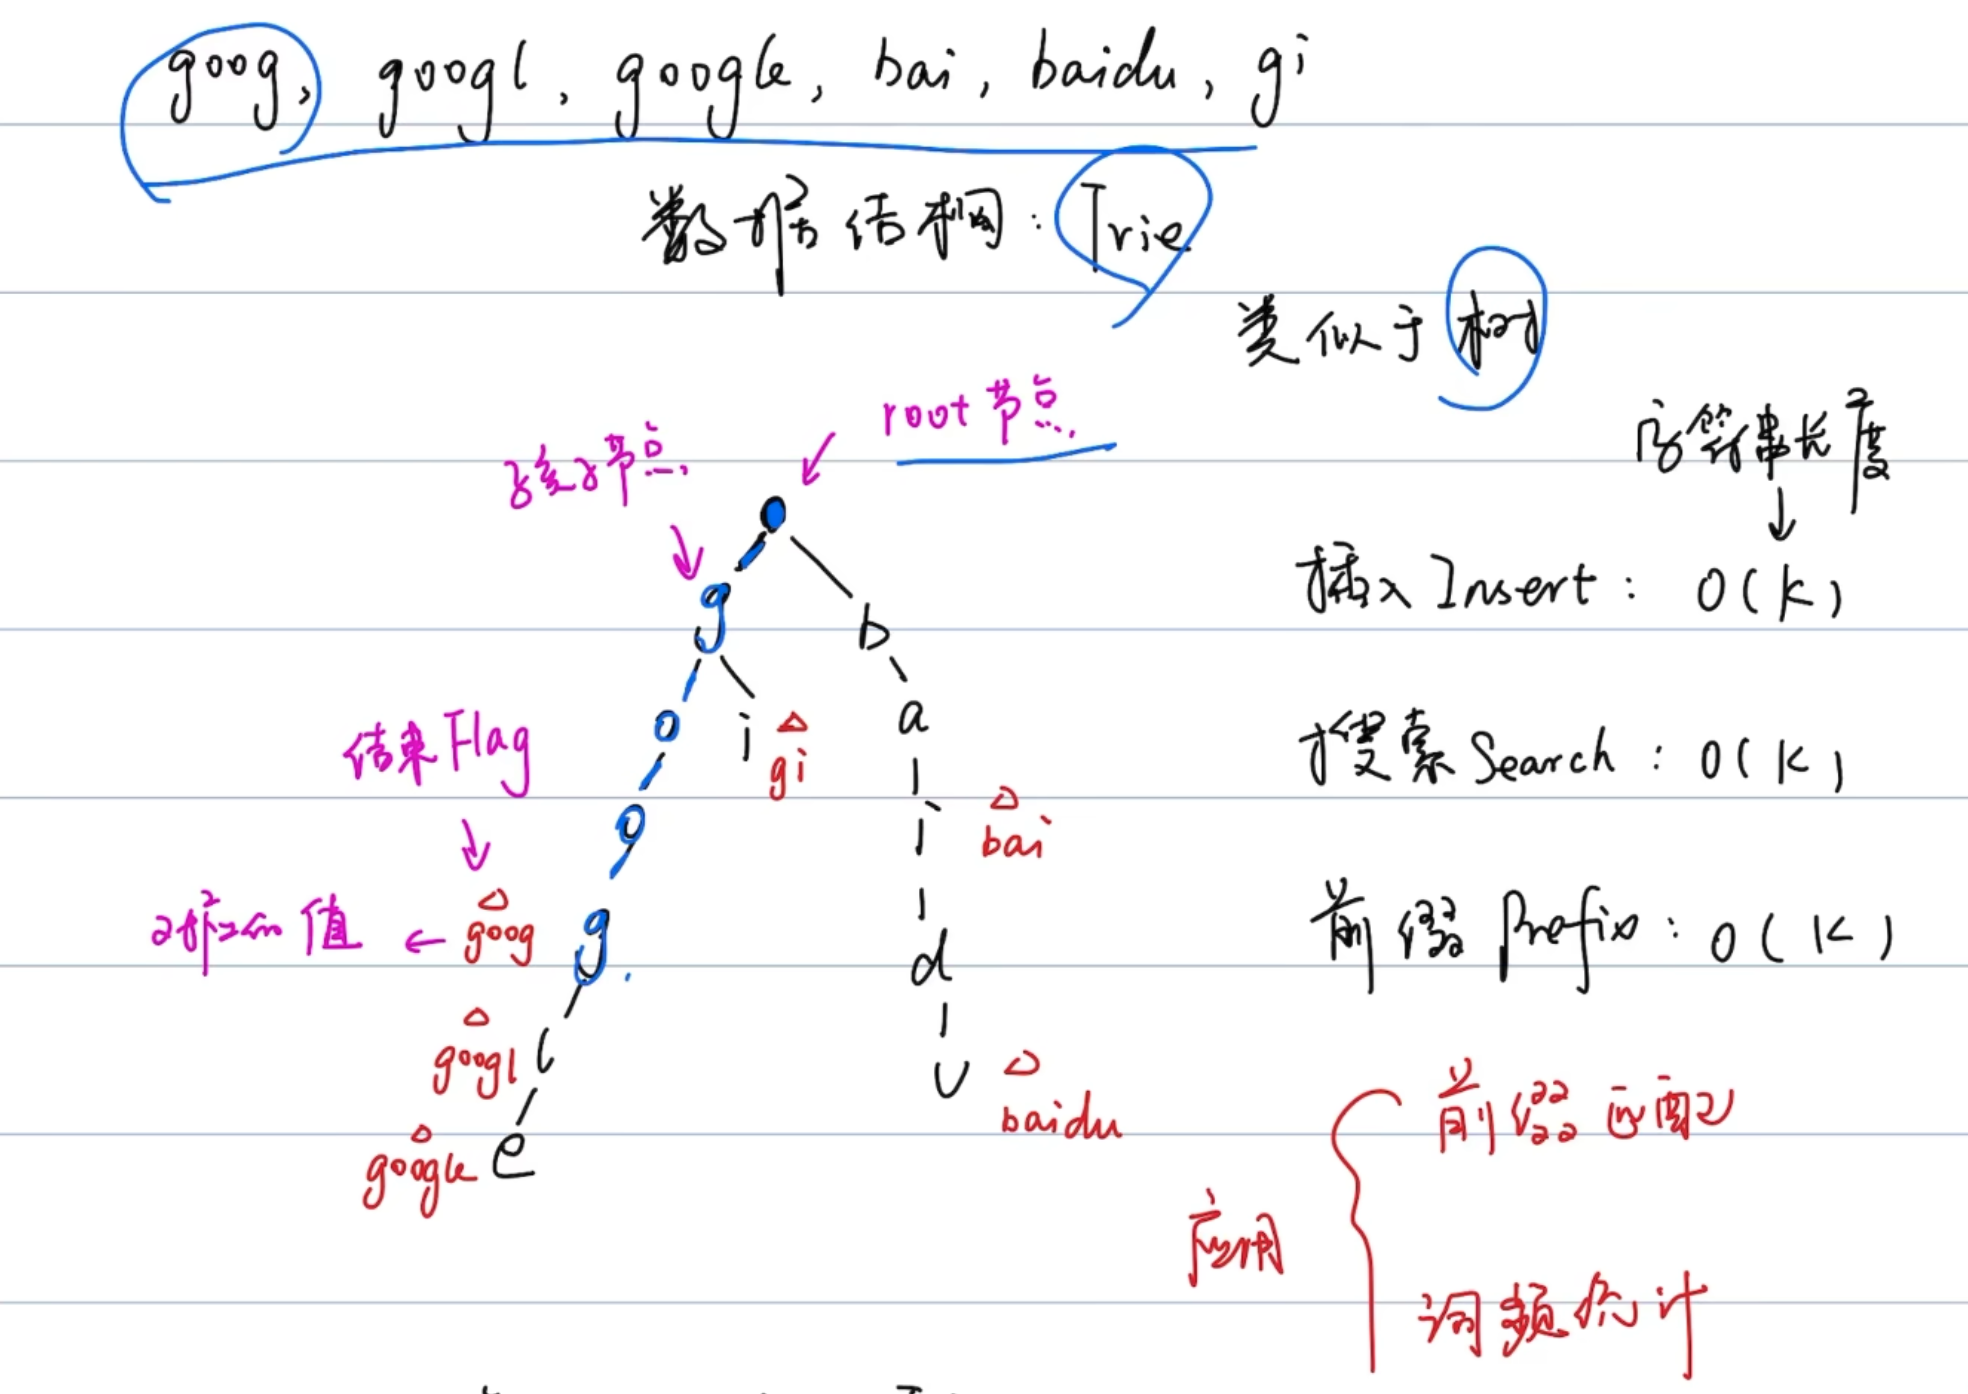 goog, googl, google, bai, baidu, gi
数据结构: Trie
类似于树
root 节点
孩子节点
字符串长度
g
b
插入 Insert: O(K)
o
i
gi
a
结束 Flag
搜索 Search: O(K)
o
i
bai
值
goog
g
d
前缀 Prefix: O(K)
googl
l
u
baidu
google
e
前缀匹配
应用
词频统计